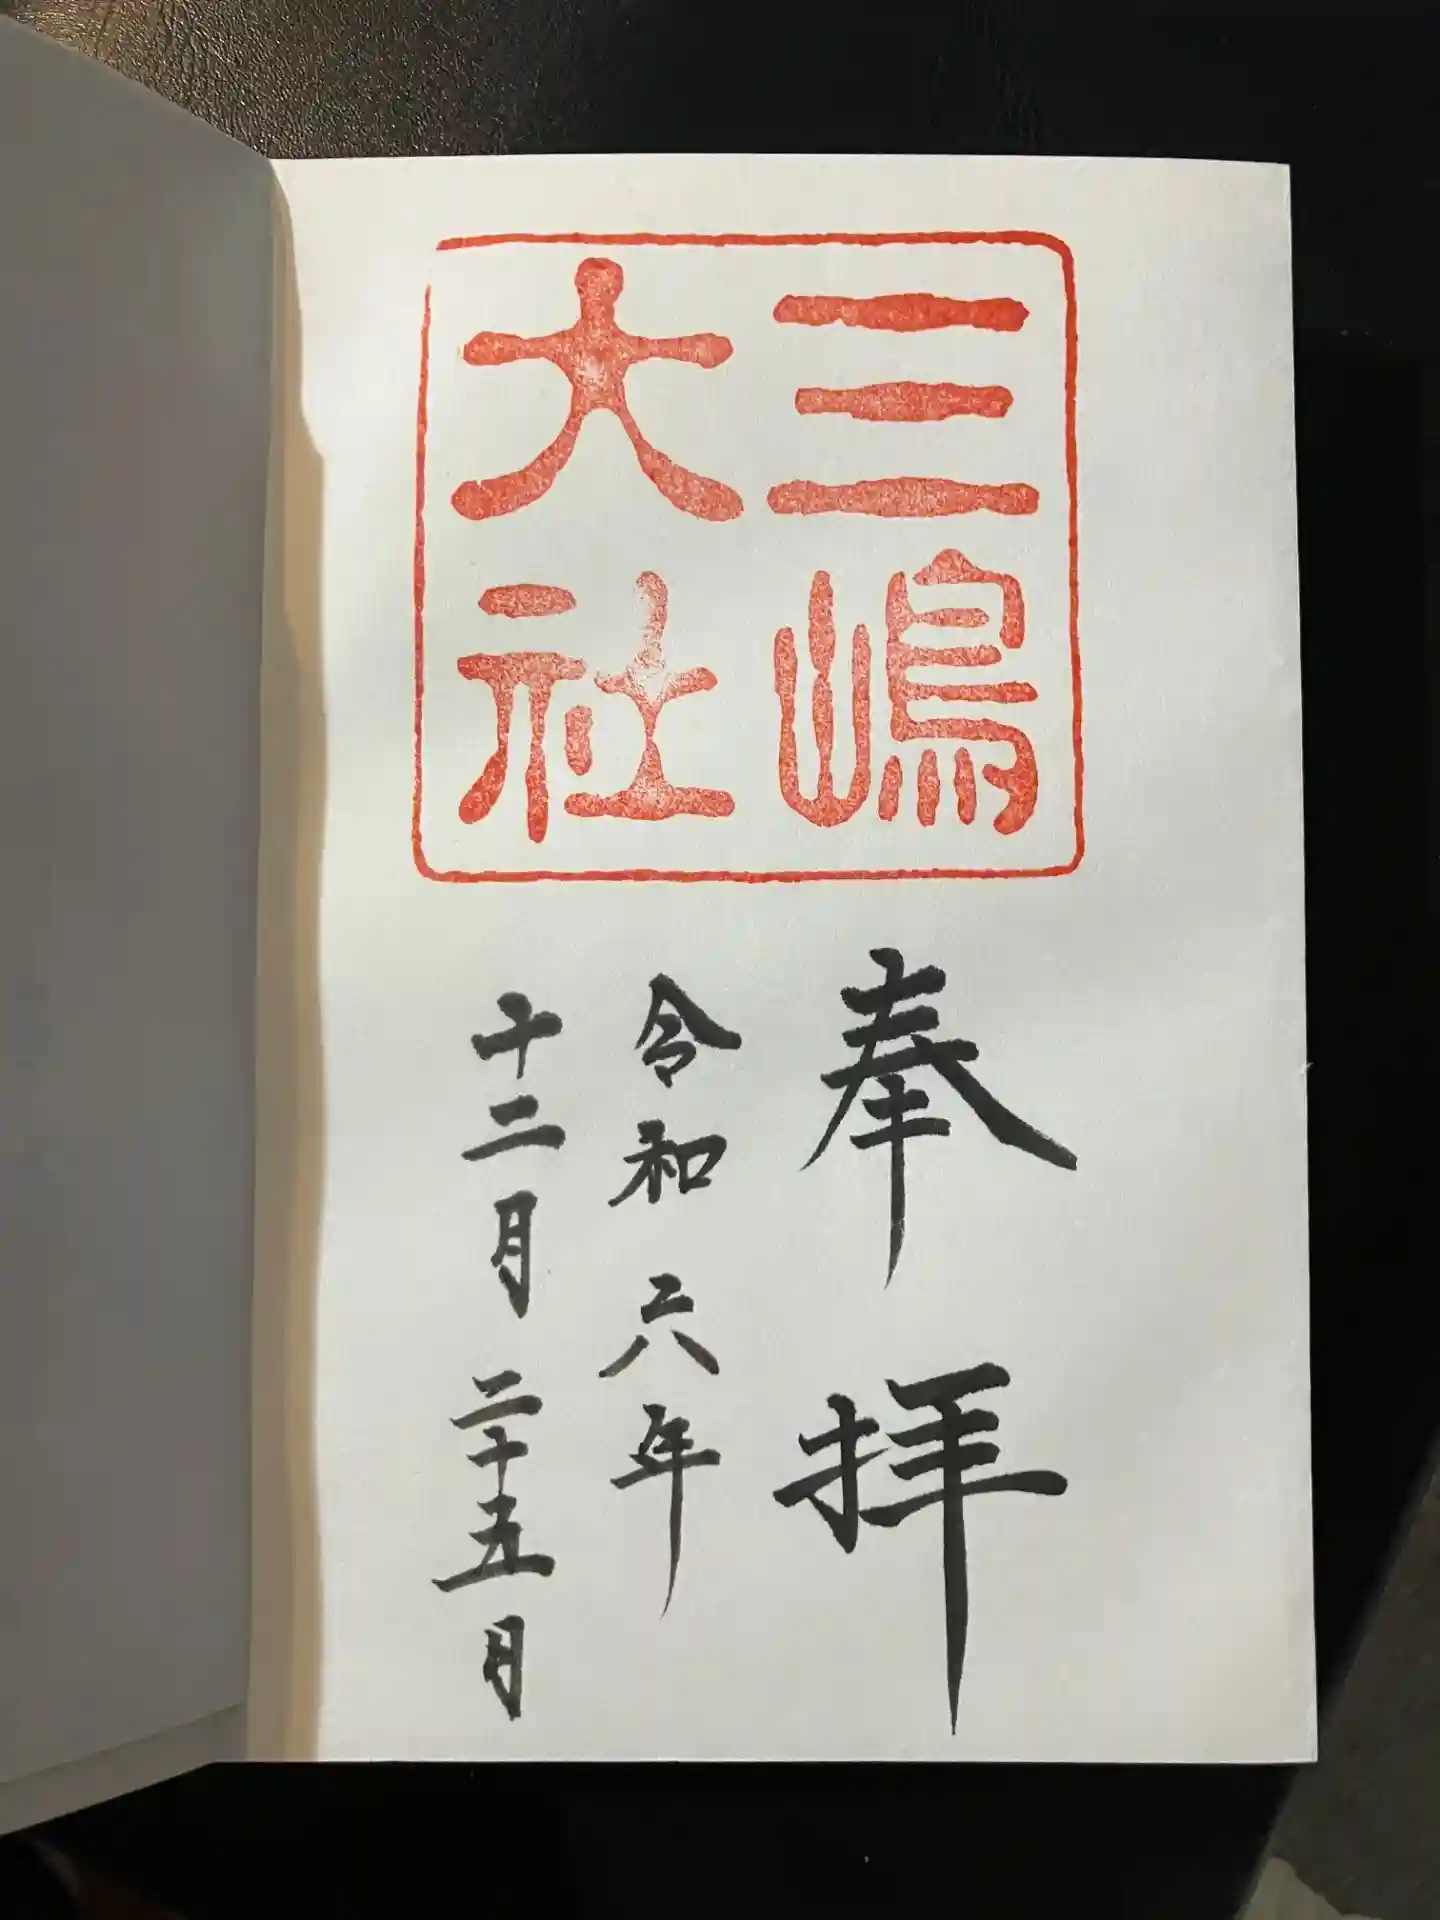 三嶋
大社
奉拝
令和六年
十二月二十五日